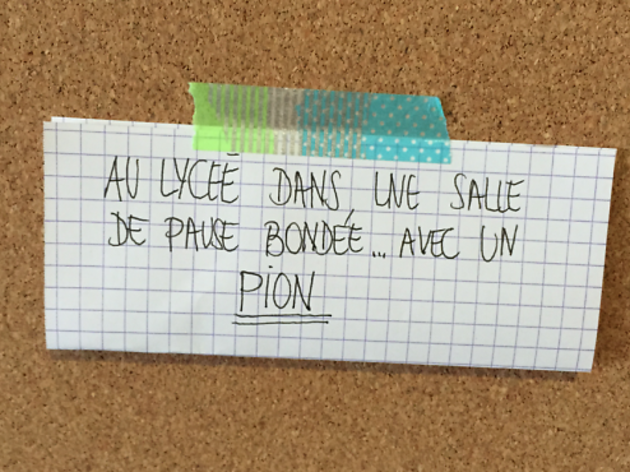 AU LYCÉE DANS UNE SALLE
DE PAUSE BONDÉE... AVEC UN
PION